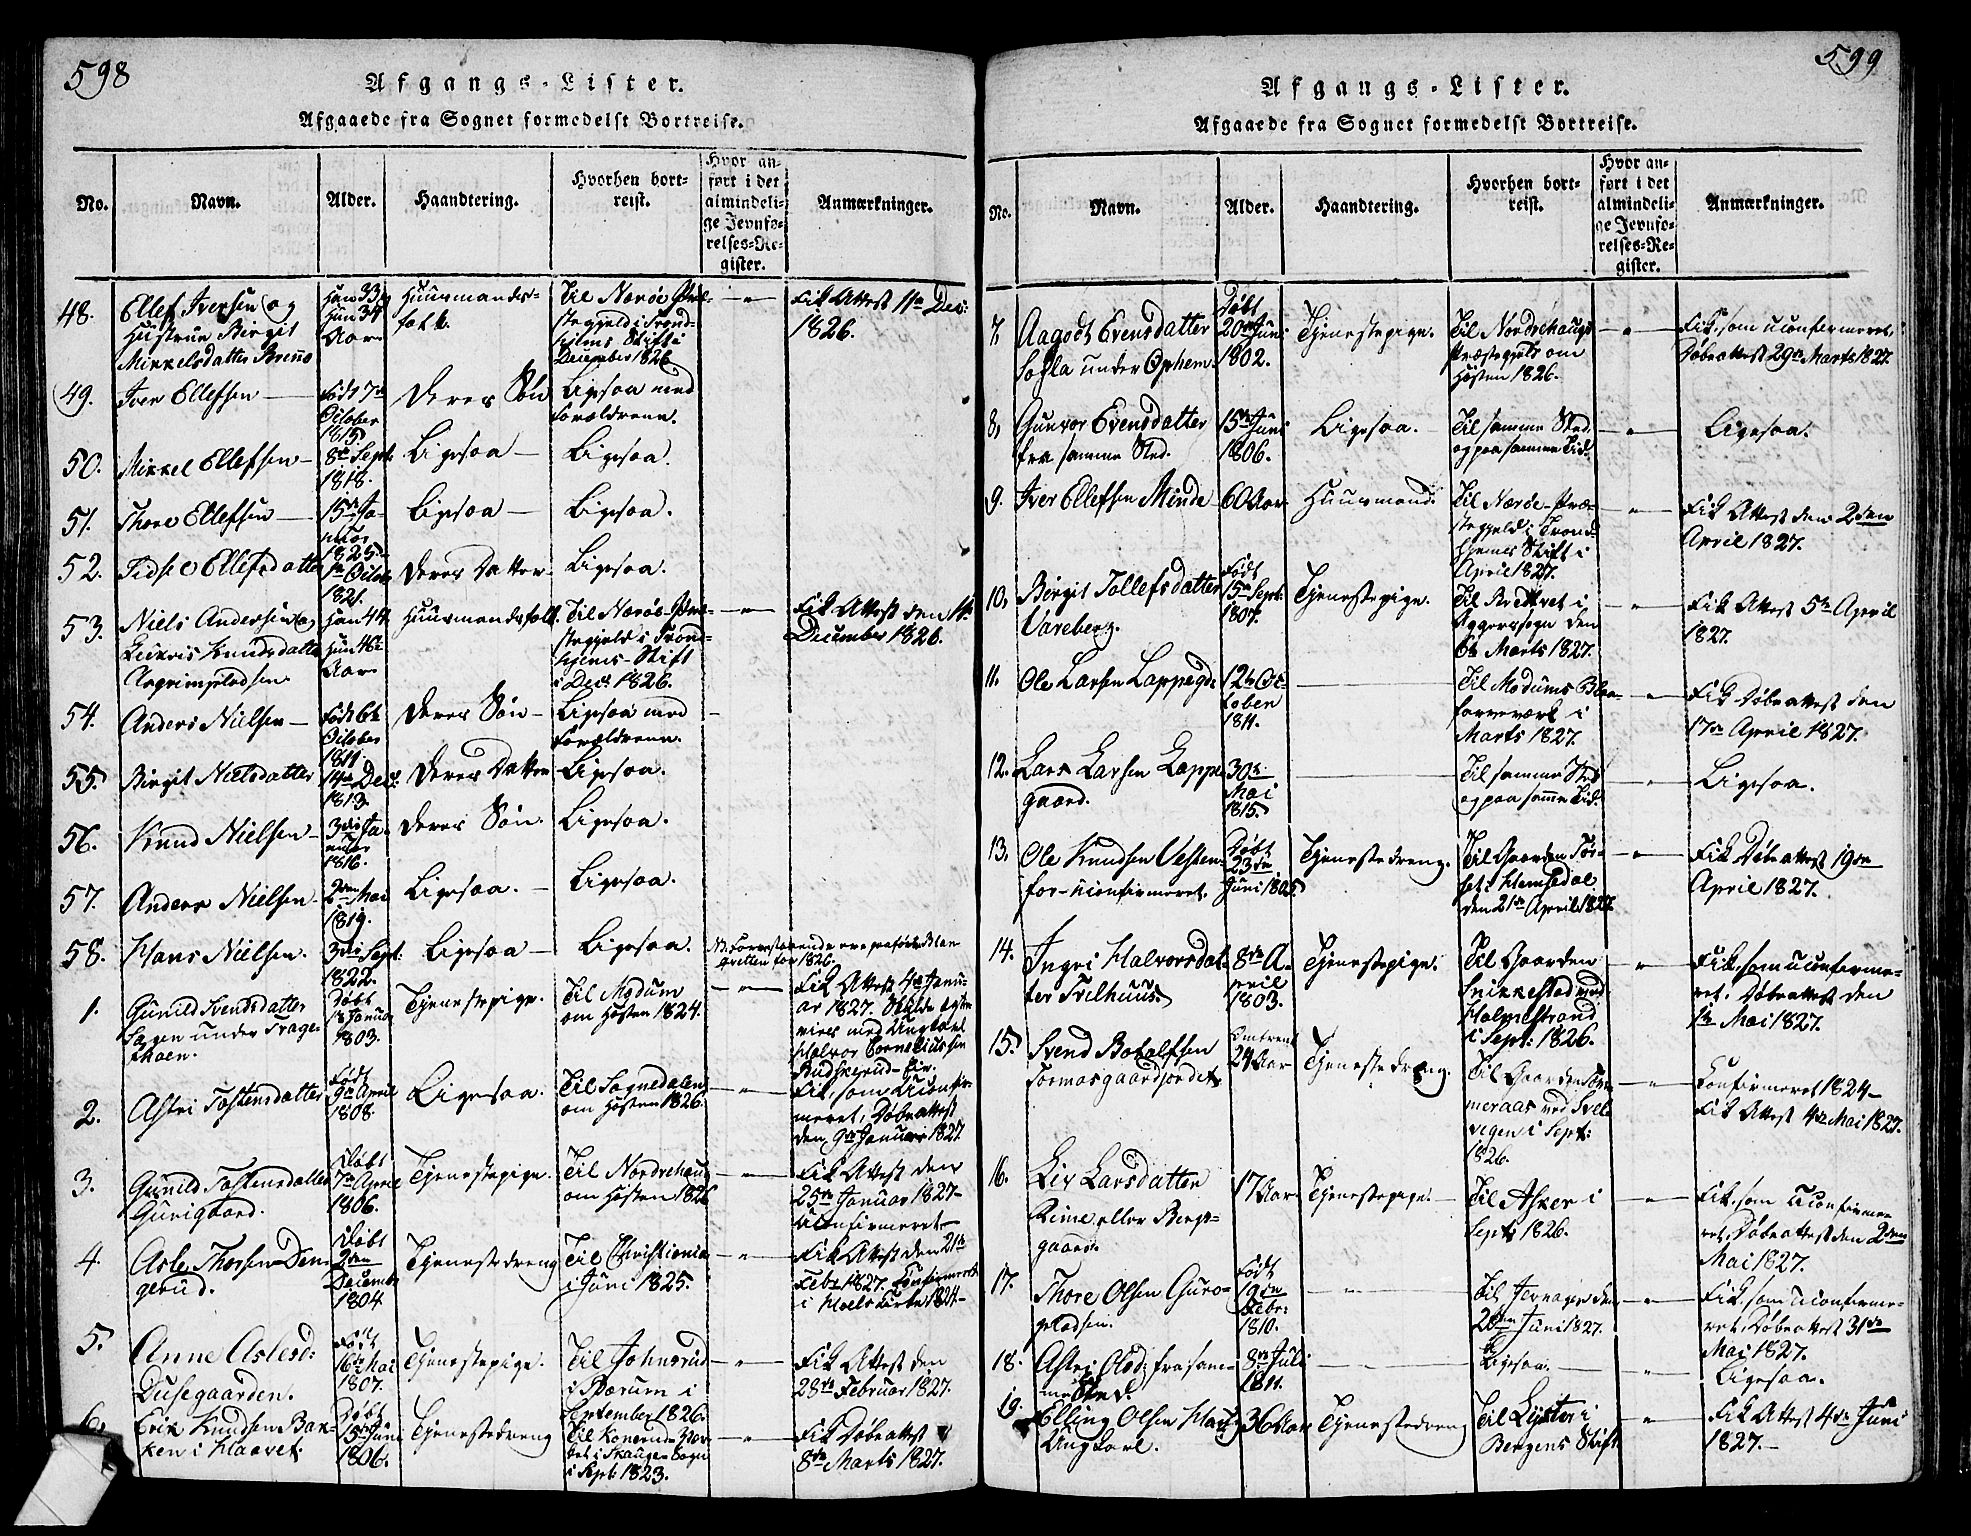 598
Afgangs-Lister.
Afgaaede fra Sognet formedelst Bortreise.
No.
Navn.
Alder.
Haandtering.
Hvorhen bort-
reist.
Hvor an-
ført i det
almindeli-
ge Jevnfø-
relses-Re-
gister.
Anmærkninger.
48.
Ellef Iversen og
Hustrue Birgit
Mikkelsdatter
Han 33
Hun 34
Aar
Huusmands-
folk.
Til Nærøe Præ-
stegjeld i Trond-
hjems Stift i
December 1826
Fik Attest 11te Dec:
1826.
49.
Iver Ellefsen
født 7de
October
1815
Deres Søn
Ligesaa med
Forældrene.
50.
Mikkel Ellefsen
8de Sept:
1818.
Ligesaa
Ligesaa.
51.
Thore Ellefsen
15de Ja-
nuar
1825
Ligesaa
Ligesaa.
52.
Ellefsdatter
1te Octob
1821.
Deres Datter
Ligesaa.
53.
Niels Andersen og
Knudsdatter
Han 44
Hun 46
Aar
Huusmandsfolk.
Til Nærøe-Præ-
stegjeld i Trond-
hjems-Stift
i Dec: 1826.
Fik Attest den 11te
December 1826.
54.
Anders Nielsen
født 6te
October
1811
Deres Søn
Ligesaa med
Forældrene.
55.
Birgit Nielsdatter
14de Dec:
1813
Deres Datter
Ligesaa.
56.
Knud Nielsen
3die Ja-
nuar
1816.
Deres Søn.
Ligesaa.
57.
Anders Nielsen
2den Mai
1819.
Ligesaa.
Ligesaa.
58.
Hans Nielsen.
3die Sept:
1822.
Ligesaa
Ligesaa.
for 1826.
1.
Gunild Svendsdatter
under
Døbt
Januar
1803.
Tjenestepige.
Til Modum
om Høsten 1824.
Fik Attest 4de Janu-
ar 1827. Skulde ægte-
vies med Ungkarl
Halvor Corneliussen
2.
Astri Tostensdatter
Født
9de April
1808
Ligesaa.
Til Sognedalen
om Høsten 1826.
Fik, som uconfir-
meret, Døbeattest
den 9de Januar 1827
3.
Gunild Tostensdatter
Gurigaard.
Døbt
7de April
1806.
Tjenestepige.
Til Nordrehaug
om Høsten 1826
Fik Attest den
25de Januar 1827
uconfirmeret
4.
Asle Thorsen Den-
gerud.
Døbt
2den
Decemb
1804
Tjenestedreng
Til Christiania
i Juni 1825.
Fik Attest den 21de
Feb: 1827. Confirmeret
i Hoels Kirke 1824
5.
Anne Aslesd:
Dusegaarden.
Født
16de Mai
1807.
Tjenestepige.
Til Johnsrud
i Bærum i
September 1826.
Fik Attest den
28de Februar 1827.
6.
Erik Knudsen Bak-
ken i Haavet.
Døbt
15de Juni
1806.
Tjenestedreng
i Skauger Sogn
i Sept 1823.
Fik Døbeattest
8de Marts 1827.
599
Afgangs-Lister.
Afgaaede fra Sognet formedelst Bortreise.
No.
Navn.
Alder.
Haandtering.
Hvorhen bort-
reist.
Hvor an-
ført i det
almindeli-
ge Jevnfø-
relses-Re-
gister.
Anmærkninger.
7.
Aagodt Evensdatter
Sogla under Ophem.
Døbt
20de Juni
1802.
Tjenestepige.
Til Nordrehougs
Præstegjeld om
Høsten 1826.
Fik, som uconfirmeret,
Døbeattest 29de Marts 1827.
8.
Gunvor Evensdatter
fra samme Sted.
15de Juni
1806.
Ligesaa.
Til samme Sted
og paa samme Tid.
Ligesaa.
9.
Iver Ellefsen Minde
60 Aar
Huusmand.
Til Nærøe-Præ-
stegjeld i Trond-
hjems Stift i
April 1827.
Fik Attest den 2den
April 1827.
10.
Birgit Tollefsdatter
Vareberg.
Født
15de Sept:
1807.
Tjenestepige.
Til Bredtvet i
Aggerssogn den
6te Marts 1827.
Fik Attest 5te April
1827.
11.
Ole Larsen Lappegd:
12te Oc-
tober
1811.
Til Modums Blaa-
farveværk i
Marts 1827.
Fik Døbeattest den
17de April 1827.
12.
Lars Larsen Lappe-
gaard.
30te
Mai
1815.
Til samme Sted
og paa samme Tid.
Ligesaa.
13.
Ole Knudsen Vesten-
for uconfirmeret.
Døbt
23de
Juni 1805
Tjenestedreng.
Til Gaarden Tør-
set i Hemsedal
den 21de April 1827.
Fik Døbeattest 19de
April 1827.
14.
Ingri Halvorsdat-
ter Trelhuus.
8de A-
pril
1803.
Tjenestepige.
Til Gaarden
Snikkestad ved
Holmestrand
i Sept: 1826.
Fik, som uconfirme-
ret, Døbeattest den
1te Mai 1827.
15.
Svend Botolfsen
Tormosgaardjordet
Omtrent
24 Aar
Tjenestedreng.
Til Gaarden Tom-
meraas ved Svel-
vigen i Sept:
1826.
Confirmeret 1824
Fik Attest 4de Mai 1827.
16.
Liv Larsdatter
Rime eller Berge-
gaard.
17 Aar
Tjenestepige.
Til Asker i
Sept: 1826.
Fik, som uconfirme-
ret, Døbeattest den 2den
Mai 1827.
17.
Thore Olsen Guro-
pladsen.
Født
19de
Febr:
1810.
Til Jevnager den
Juni 1827.
Fik, som uconfirme-
ret, Døbeattest 31te
Mai 1827.
18.
Astri Olsd: fra sam-
me Sted.
8de Juli
1811.
Ligesaa.
Ligesaa.
19.
Elling Olsen Haug
Ungkarl.
36 Aar
Tjenestedreng
Til Lyster i
Bergens Stift
Fik Attest 4de Juni
1827.